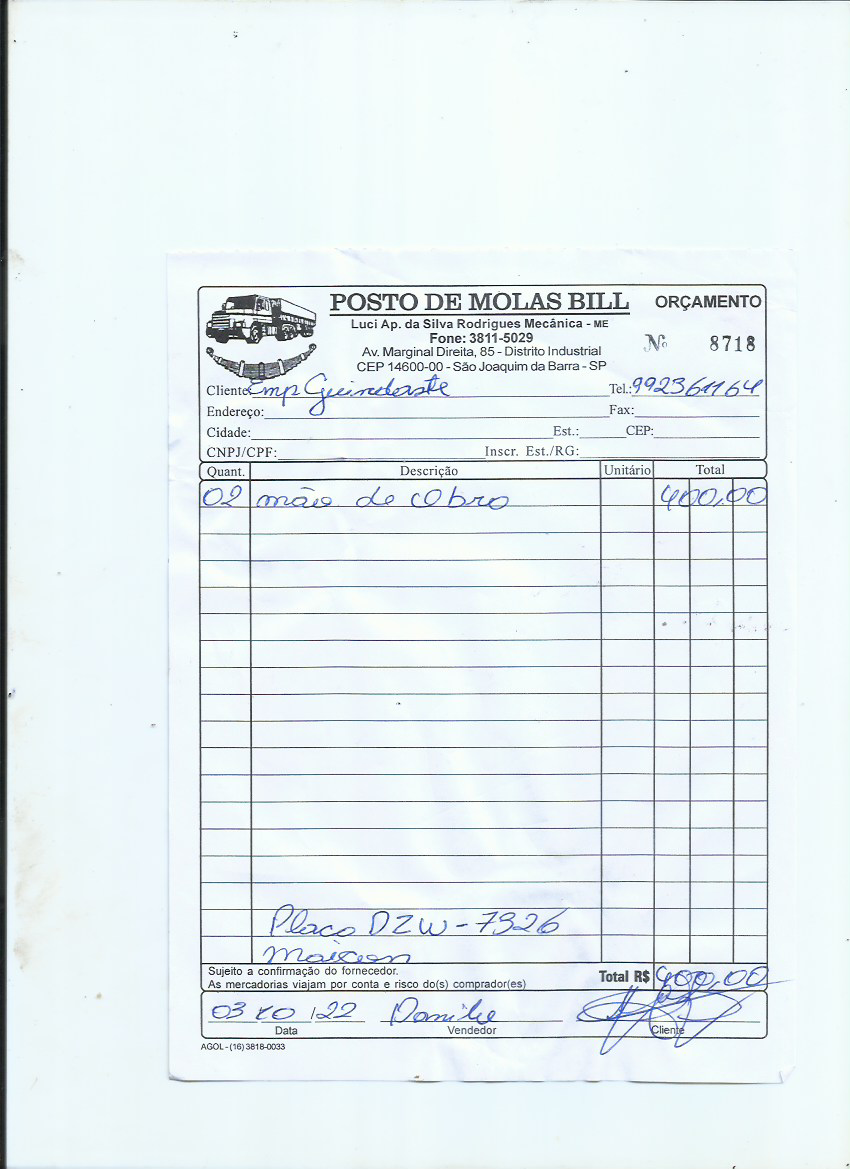 POSTO DE MOLAS BILL ORÇAMENTO
Luci Ap. da Silva Rodrigues Mecânica - ME
Fone: 3811-5029
Av. Marginal Direita, 85 - Distrito Industrial
CEP 14600-00 - São Joaquim da Barra - SP
Nº 8718
Cliente Emp Guindaste Tel.: 992361164
Endereço: Fax:
Cidade: Est.: CEP:
CNPJ/CPF: Inscr. Est./RG:
Quant. Descrição Unitário Total
02 mão de Obra 400,00
Placa DZW-7326
Maicon
Sujeito a confirmação do fornecedor.
As mercadorias viajam por conta e risco do(s) comprador(es)
Total R$ 400,00
03 10 122 Danilo
Data Vendedor Cliente
AGOL - (16) 3818-0033